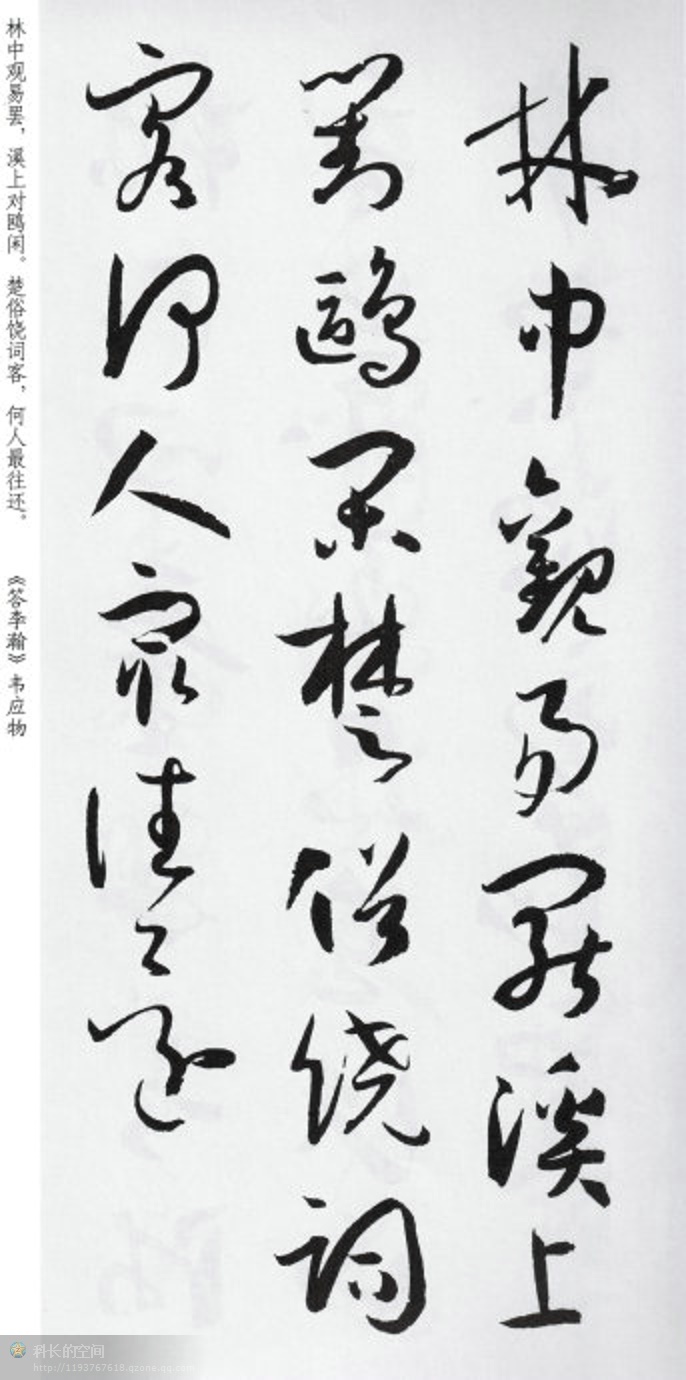 林中觀易罷溪上
對鷗閑楚俗饒詞
客何人最往々還
林中观易罢，溪上对鸥闲。楚俗饶词客，何人最往还。　《答李瀚》韦应物
科长的空间
http://1193767618.qzone.qq.com